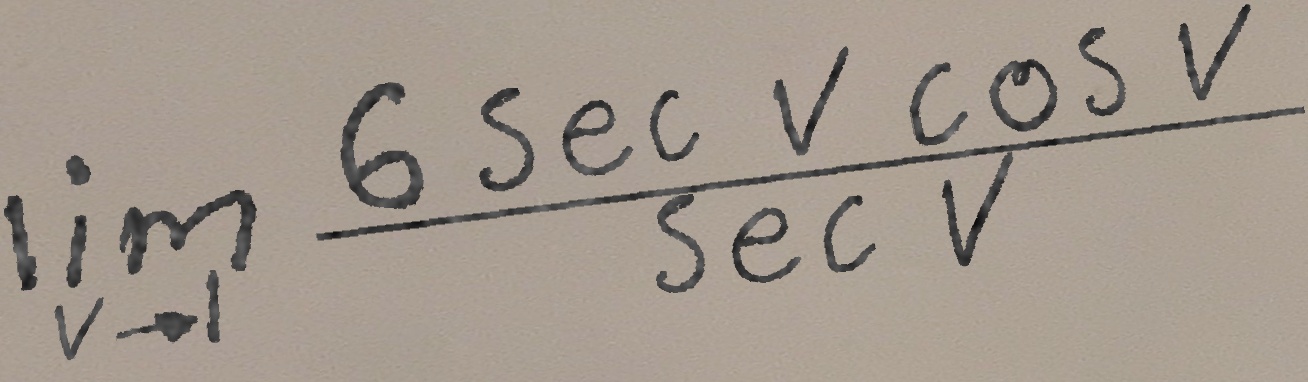 lim v→1 6 sec v cos v / sec v